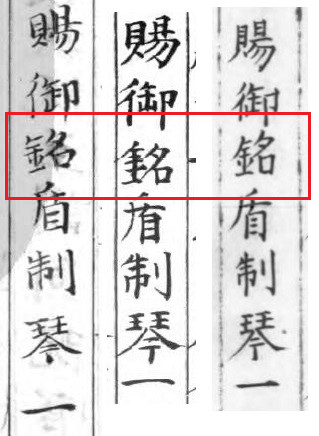 賜御銘盾制琴一
賜御銘盾制琴一
賜御銘盾制琴一